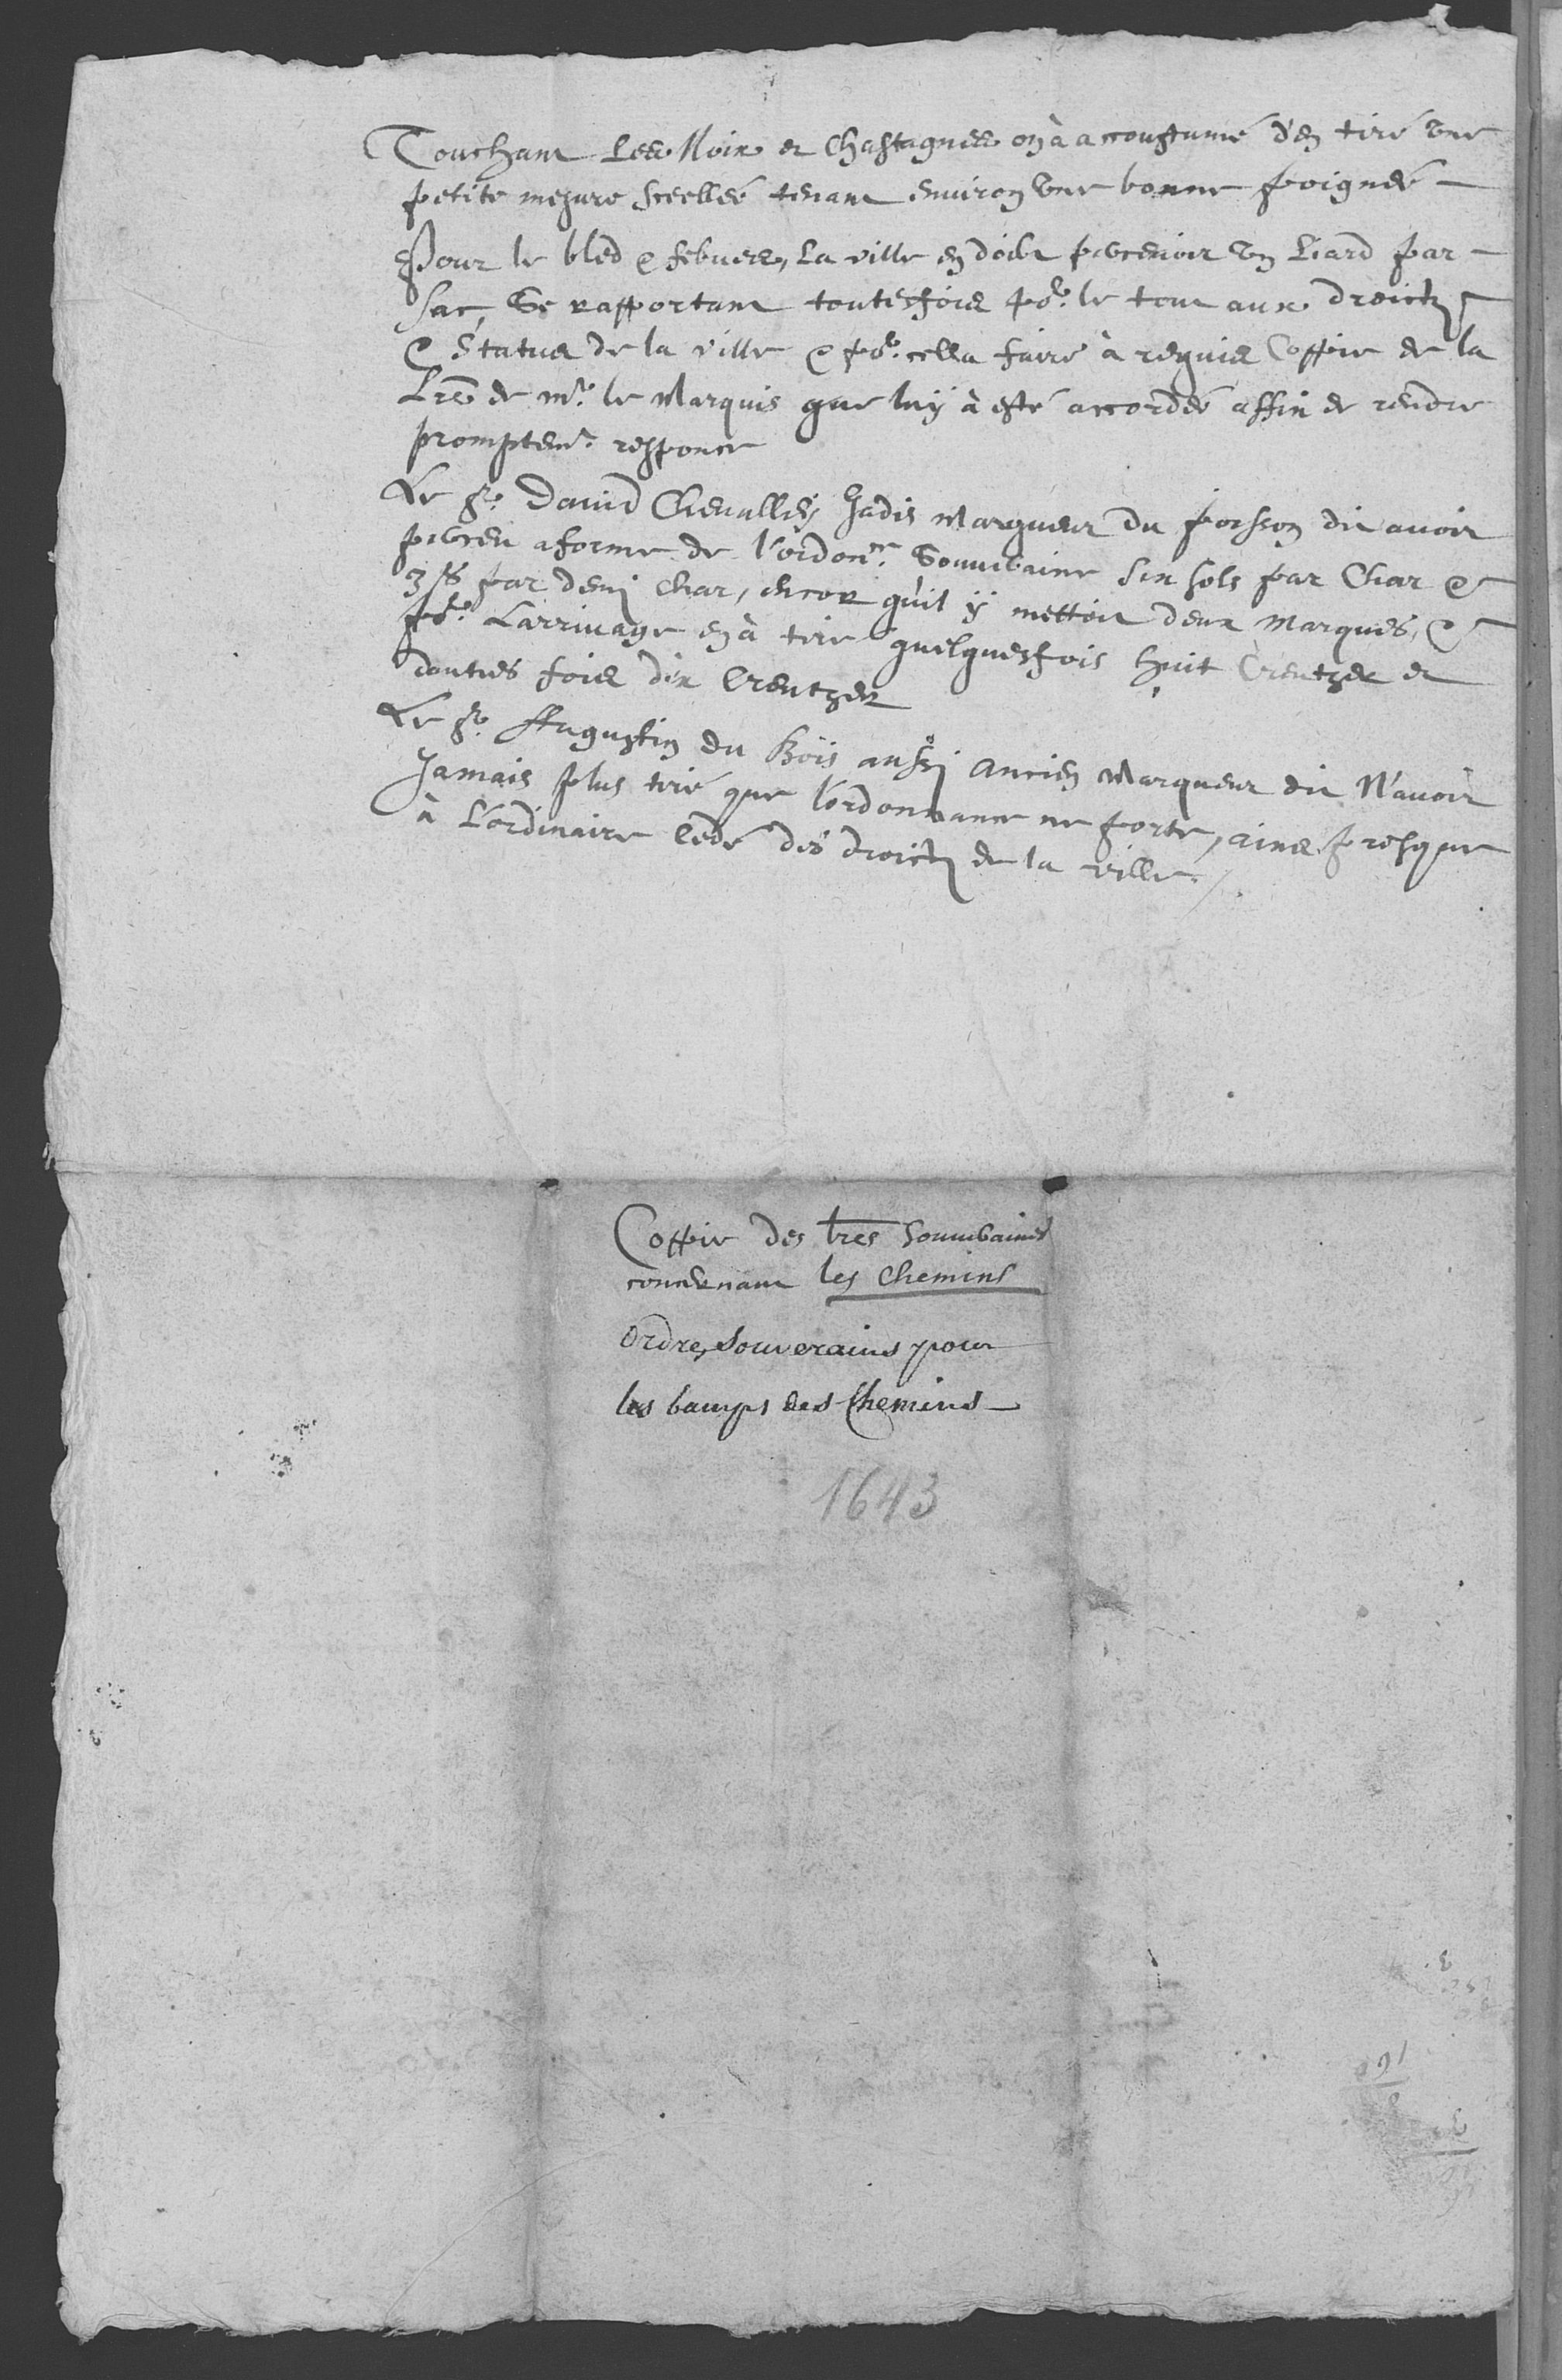 Touchant Les Noix et Chastagnes on à accoustumé d'en tiré une
petite mesure sceellée tenant environ une bonne poignée
Pour le bled & febues, La ville en doibt percevoir un Liard par
sac, Se rapportant toutesfois po.r le tout aux droictz
& Status de la ville & po.r cella faire à requis Coppie de la
Lre de mr. le Marquis que luÿ à esté accordée affin de rendre
promptemt. responce
Le Sr. David Chevalley Jadis Marqueur du poisson dit avoir
perceu a forme de l'ordonce. Souveraine six sols par Char &
3 ss par demj Char, encor qu'il ÿ mettoit deux Marques, &
po.r Larrivage en à tiré quelquesfois huit Creutzer et
dautres fois dix Creutzer
Le Sr. Augustin du Bois aussj ancien Marqueur dit N'avoir
Jamais plus tiré que l'ordonnance ne porte, ains presque
à L'ordinaire cedé des droictz de la ville./.
Coppie des Lres Souveraines
concernant les Chemins
Ordres Souverains pour
les bamps des Chemins
1643